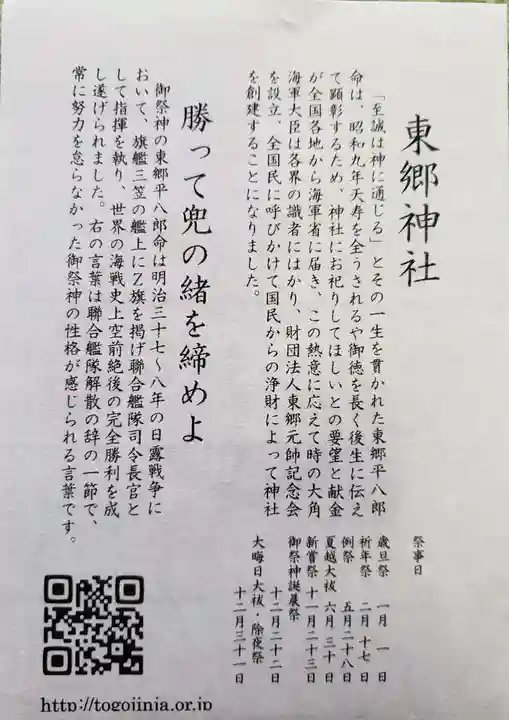 東郷神社
「至誠は神に通じる」とその一生を貫かれた東郷平八郎
命は、昭和九年天寿を全うされるや御徳を長く後生に伝え
て顕彰するため、神社にお祀りしてほしいとの要望と献金
が全国各地から海軍省に届き、この熱意に応えて時の大角
海軍大臣は各界の識者にはかり、財団法人東郷元帥記念会
を設立、全国民に呼びかけて国民からの浄財によって神社
を創建することになりました。
勝って兜の緒を締めよ
御祭神の東郷平八郎命は明治三十七～八年の日露戦争に
おいて、旗艦三笠の艦上にZ旗を掲げ聯合艦隊司令長官と
して指揮を執り、世界の海戦史上空前絶後の完全勝利を成
し遂げられました。右の言葉は聯合艦隊解散の辞の一節で、
常に努力を怠らなかった御祭神の性格が感じられる言葉です。
祭事日
歳旦祭 一月 一日
祈年祭 二月 十七日
例祭 五月二十八日
夏越大祓 六月 三十日
新嘗祭 十一月二十三日
御祭神誕晨祭
十二月二十二日
大晦日大祓・除夜祭
十二月三十一日
http://togojinja.or.jp